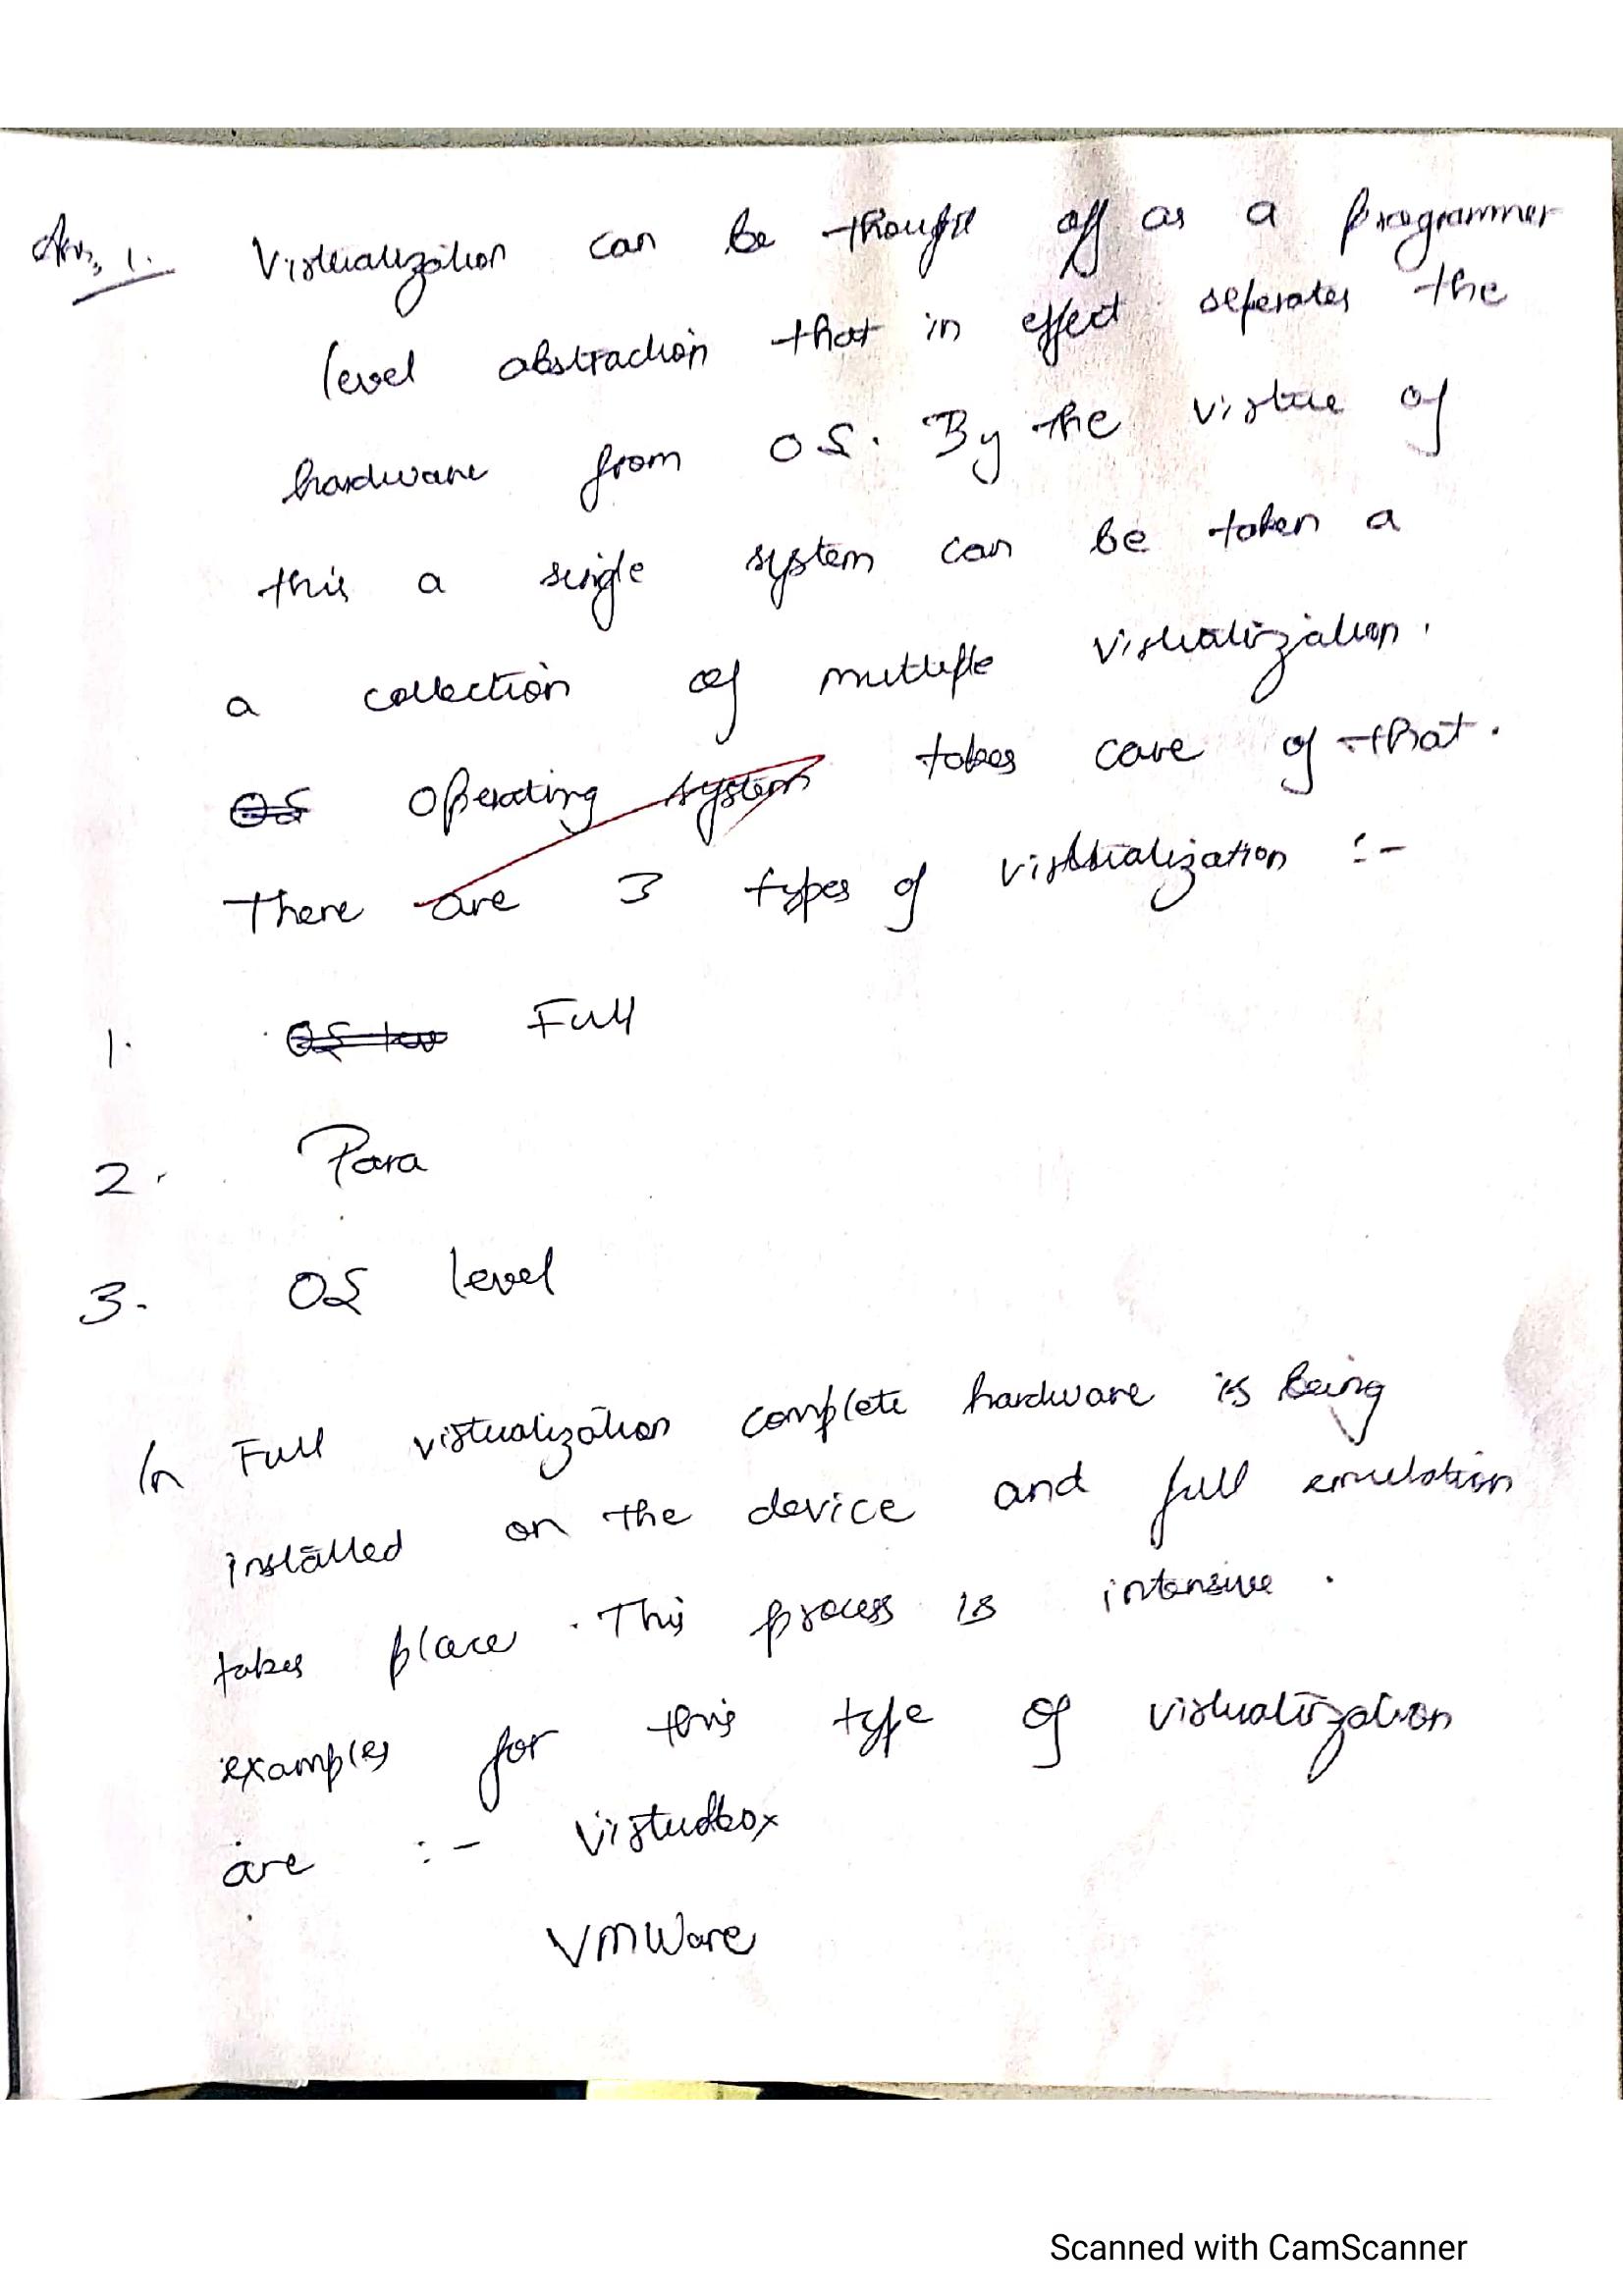 Ans 1. Virtualization can be thought off as a programmer
level abstraction that in effect seperates the
hardware from OS. By the virtue of
this a single system can be taken a
a collection of multiple virtualization.
OS Operating system takes care of that.
There are 3 types of virtualization :-
1. Full
2. Para
3. OS level
In Full virtualization complete hardware is being
installed on the device and full emulation
takes place. This process is intensive.
examples for this type of virtualization
are :- Virtualbox
VMWare
Scanned with CamScanner